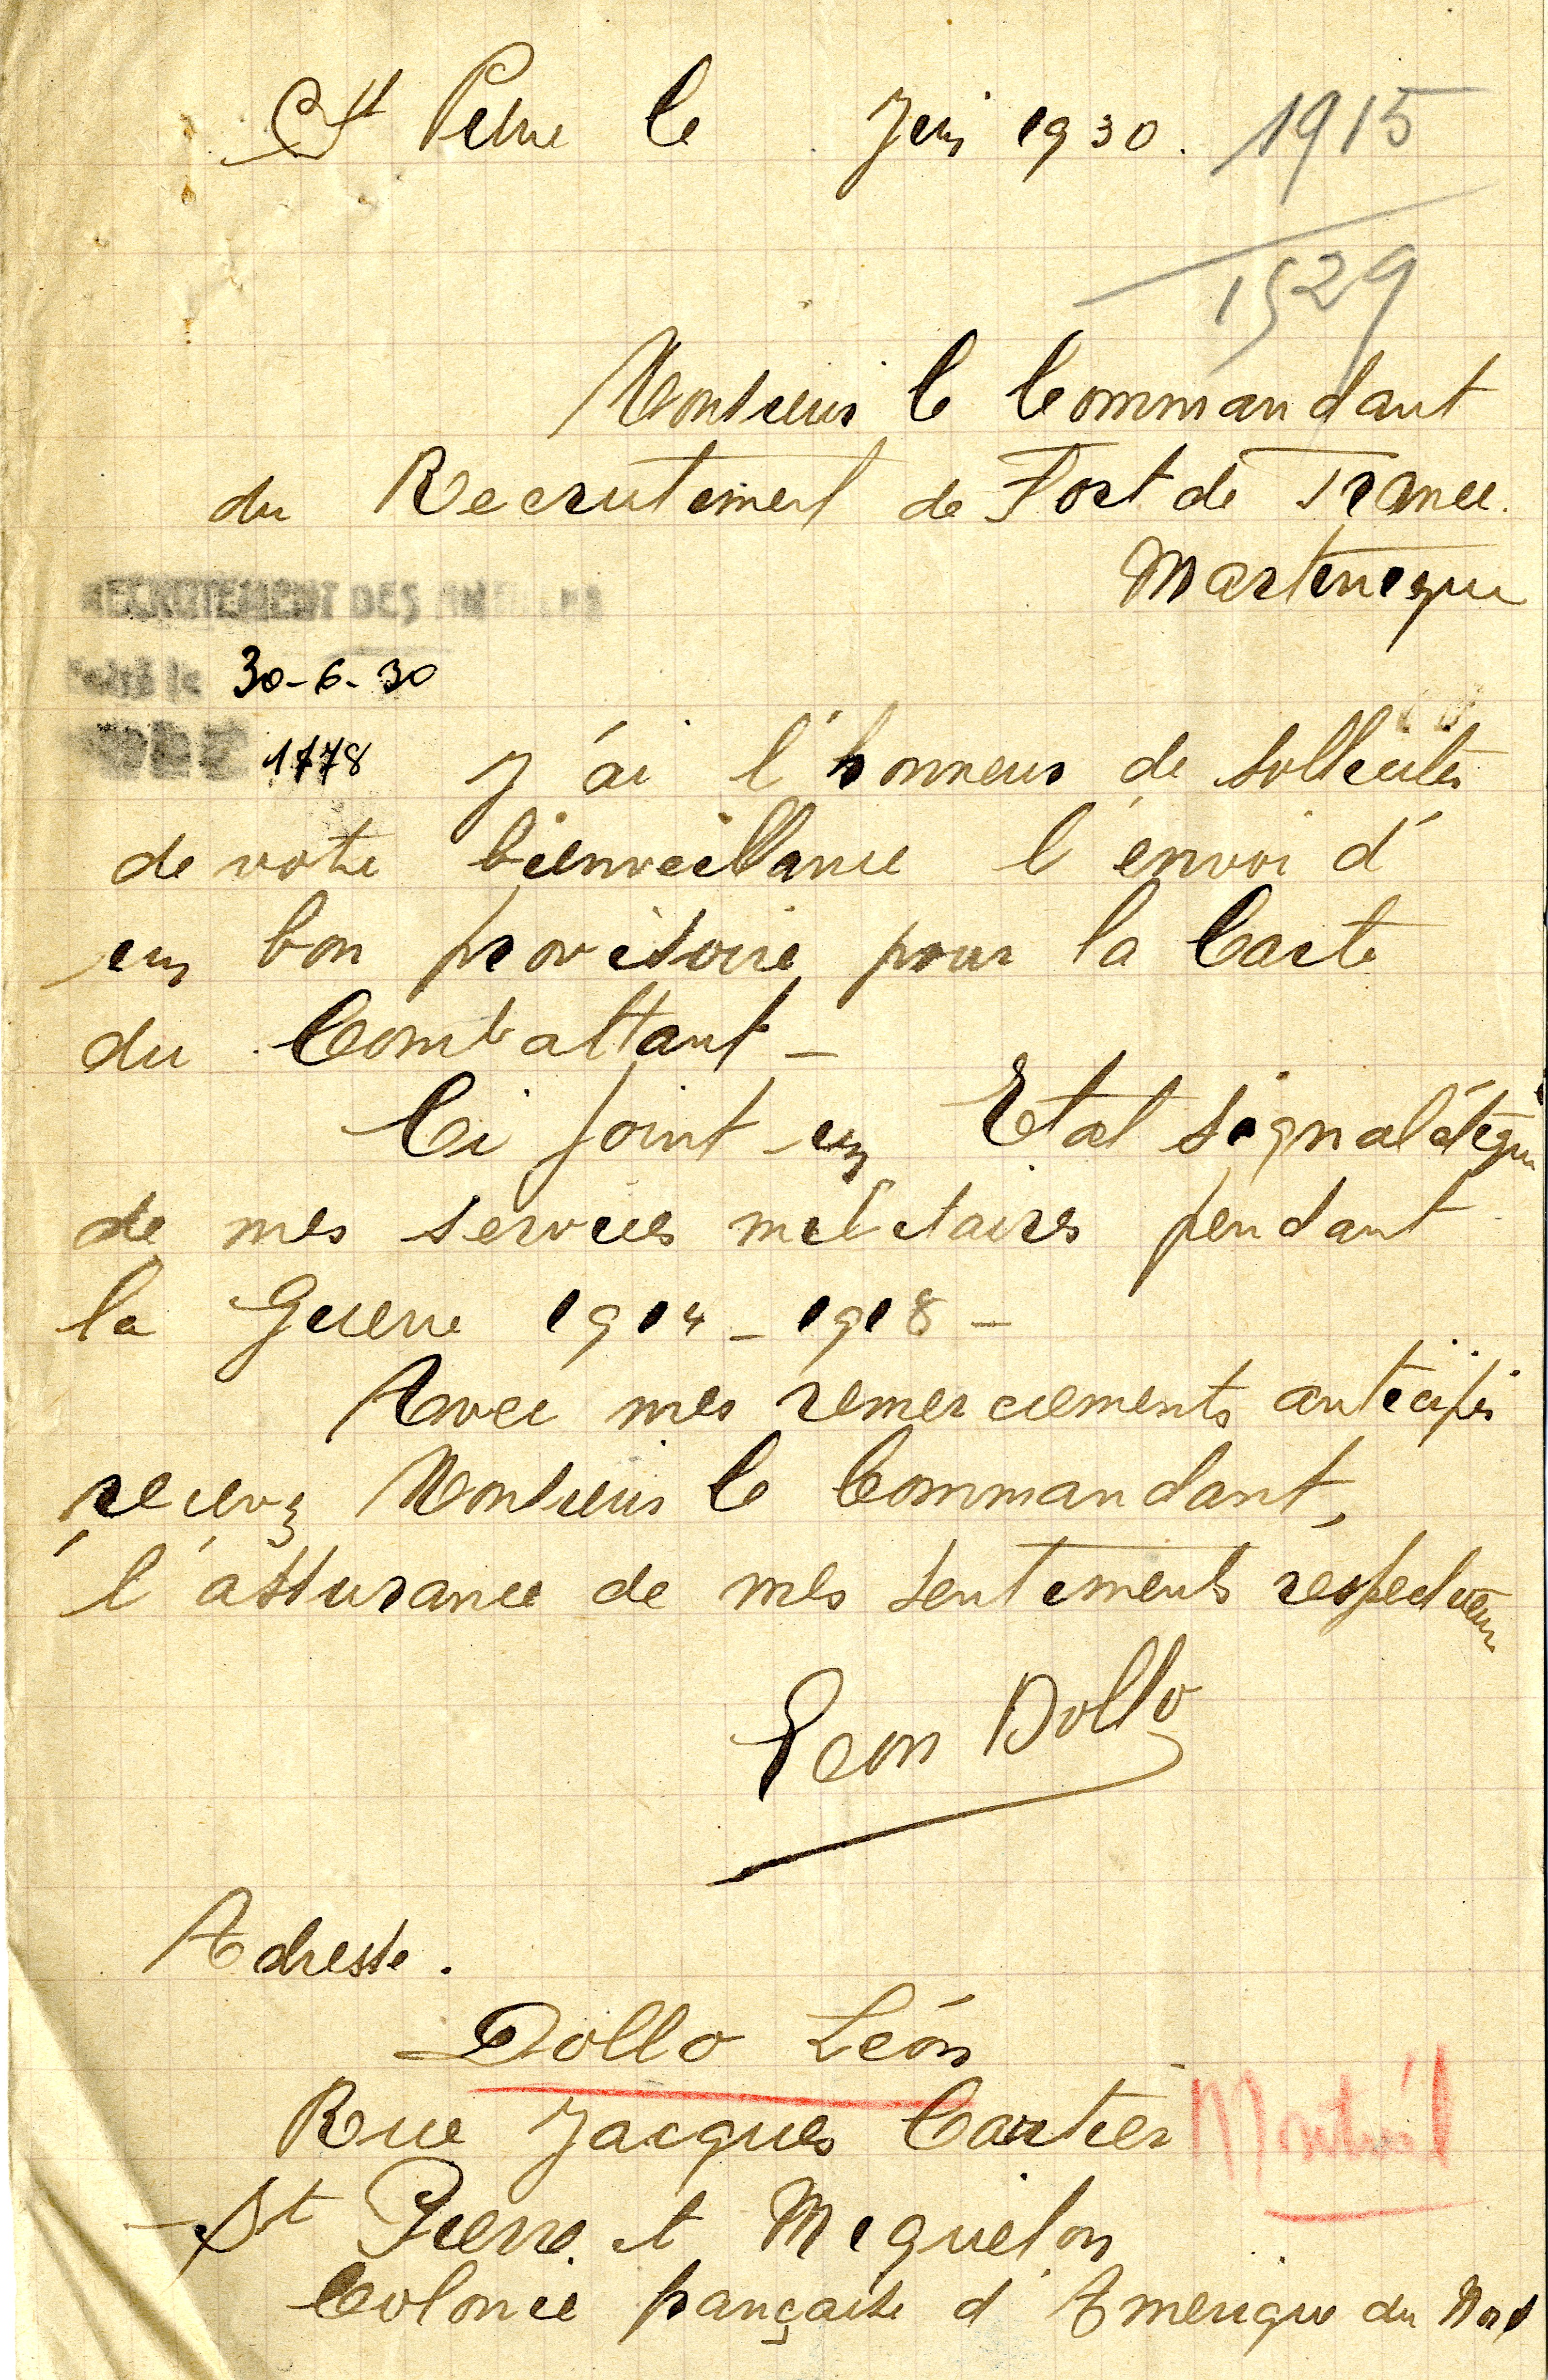 St Pierre le Juin 1930. 1915
1529
Monsieur le Commandant
du Recrutement de Fort de France.
Martinique
RECRUTEMENT DES
30-6-30
1778
J'ai l'honneur de solliciter
de votre bienveillance l'envoi d'
un bon provisoire pour la Carte
du Combattant -
Ci joint un Etat signalétique
de mes services militaires pendant
la Guerre 1914 - 1918 -
Avec mes remerciements anticipés
recevez Monsieur le Commandant,
l'assurance de mes sentiments respectueux
Leon Dollo
Adresse.
Dollo Léon
Rue Jacques Cartier Montréal
St Pierre et Miquelon
Colonie française d'Amerique du Nord